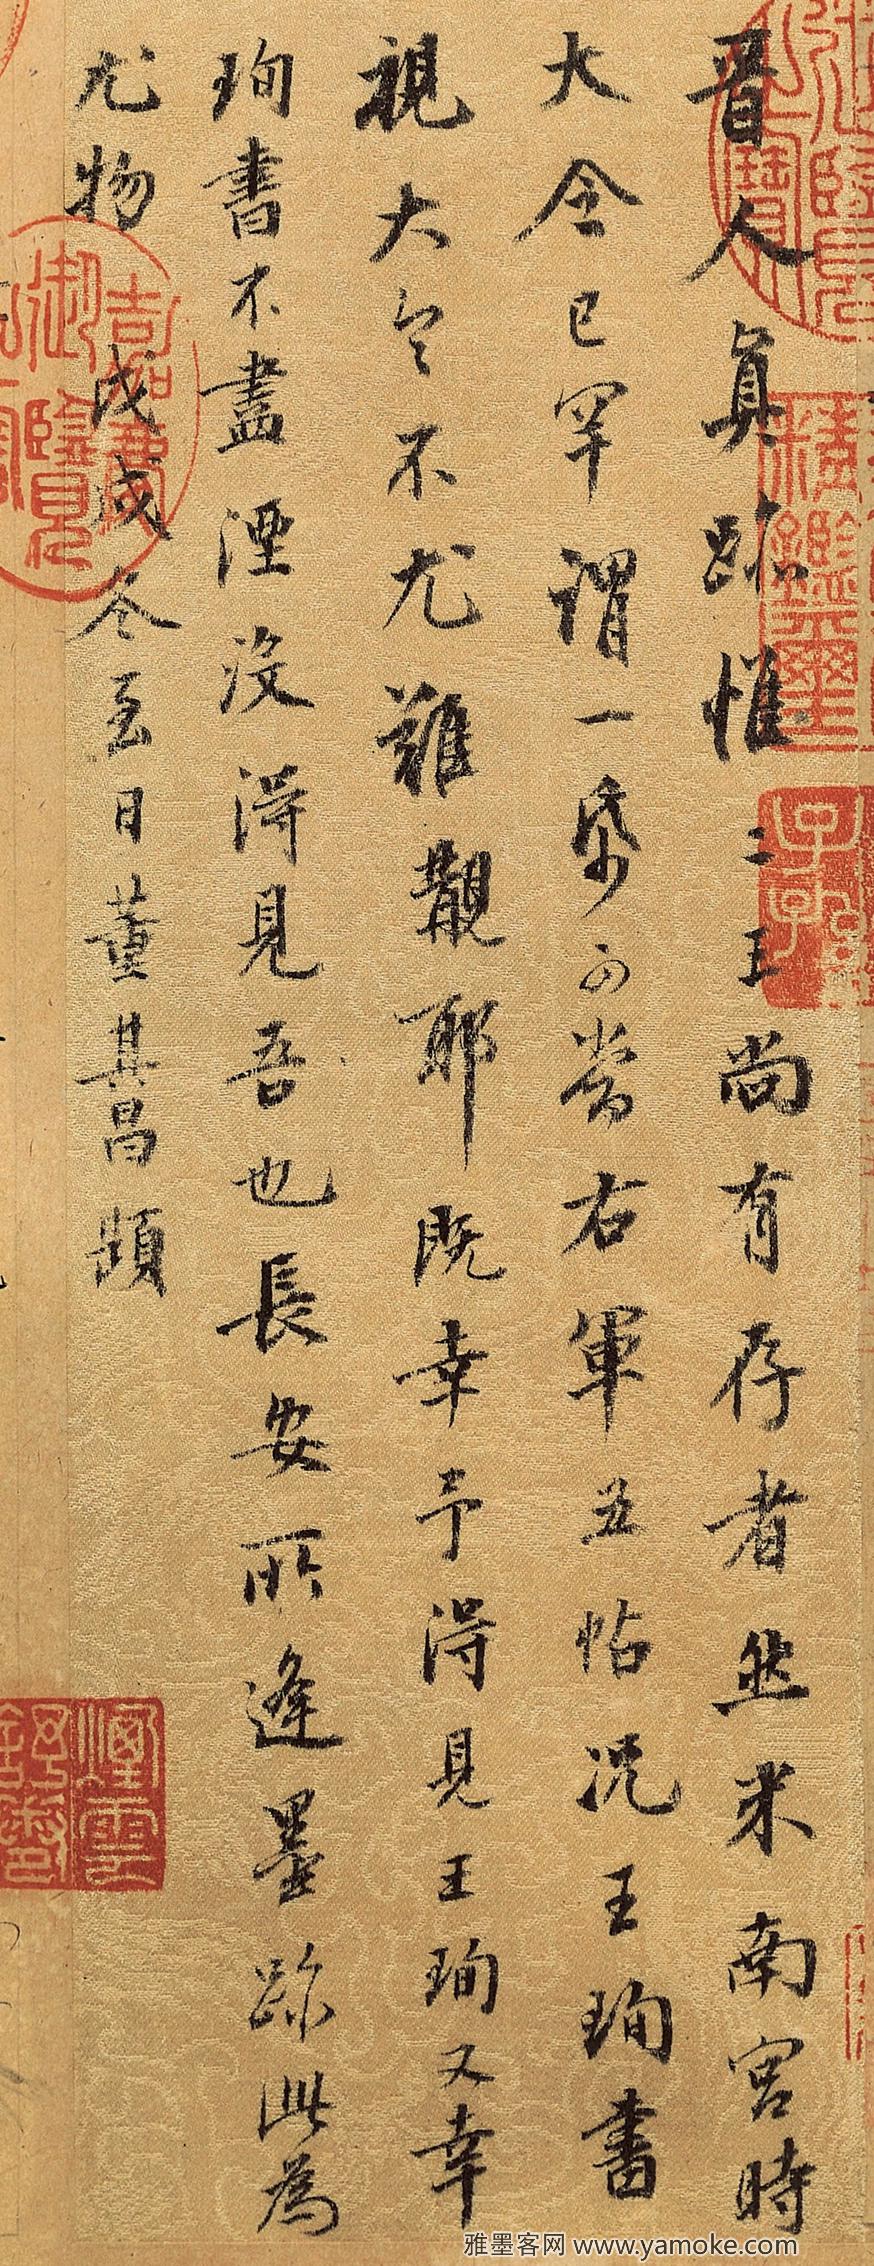 晉人真跡惟二王尚有存者然米南宮時
大令已罕謂一紙可當右軍五帖況王珣書
視大令不尤難覯耶既幸予得見王珣又幸
珣書不盡湮沒得見吾也長安所逢墨跡此為
尤物 戊戌冬至日董其昌題
嘉慶御覽
精鑑璽
子孫
煙雲
雅墨客网 www.yamoke.com